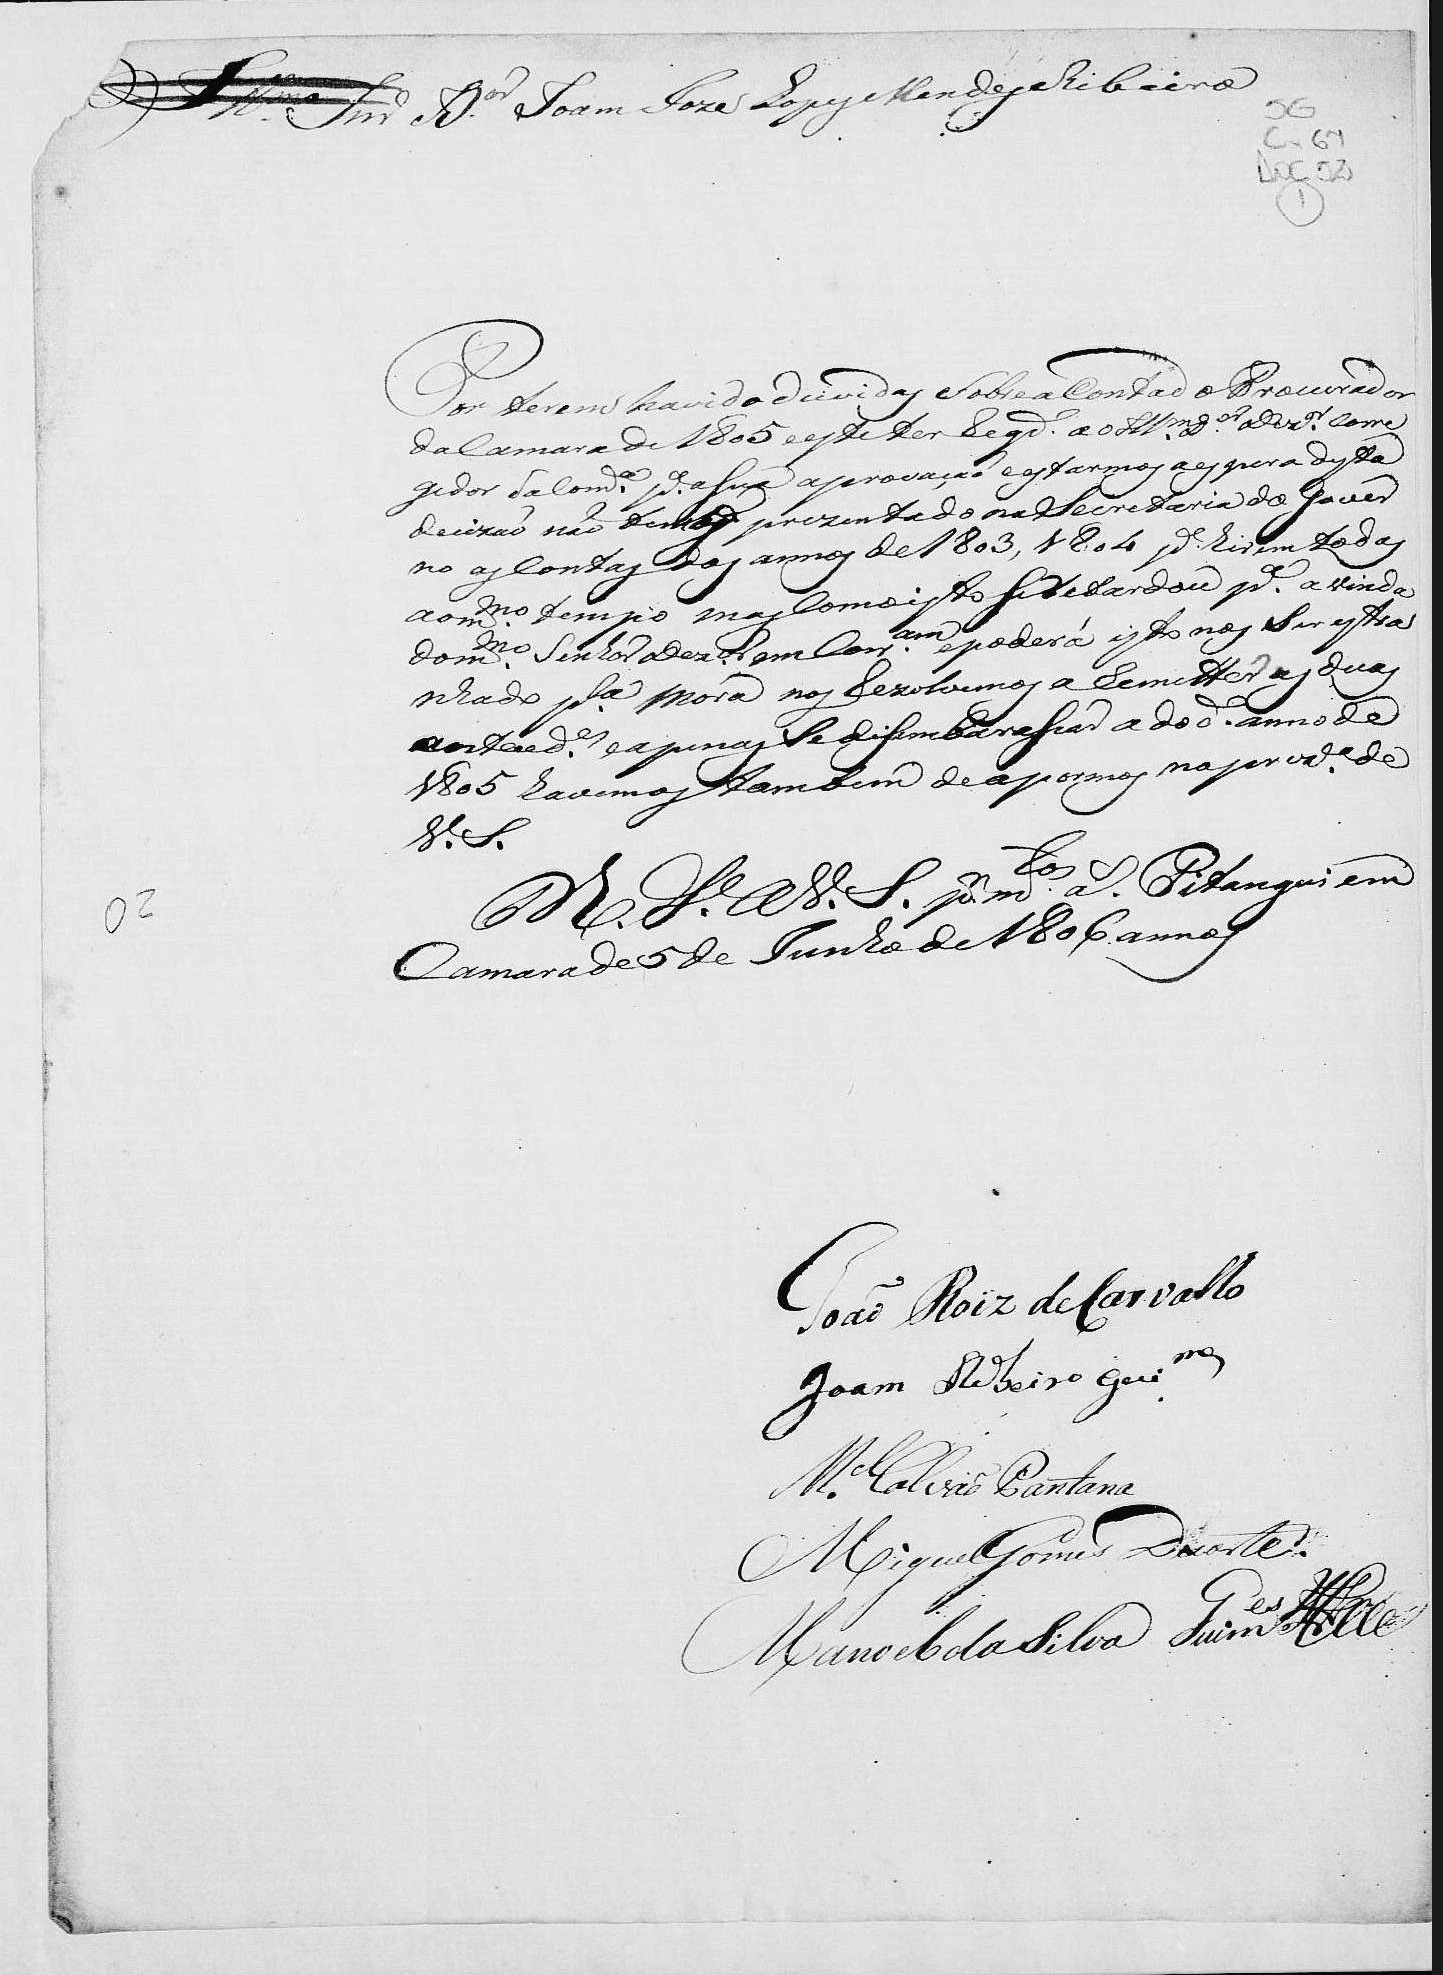 Ill.mo Snr D.or Joam Joze Lopes Mendes Ribeiro
SG
Cx 64
Doc 52
1
Por terem havido duvidas sobre a Conta do Procurador
da Camara de 1805 e este ter Reqd.o ao Ill.mo D.or Dez.or Corre
gedor da Com.ca p.a a sua aprovação e estarmos a espera desta
decizão não temos prezentado na Secretaria do Gover
no as Contas dos annos de 1803, 1804 p.a hirem todas
ao m.mo tempo mas como isto se Retardou p.a a vinda
do m.mo Senhor Dez.or em Cor.am e poderá isto nos Ser estra
nhado p.la mora nos Rezolvemos a Remetter as duas
anteced.es e apenas Se disembarassar a do d.o anno de
1805 havemos tambem de a pormos na prez.a de
V. S.
D. G.e a V. S. p.r m.tos a.s Pitangui em
Camara de 5 de Junho de 1806 annos
02
João Roiz de Carvalho
Joam Ribeiro Gui.mes
M.el Galvão Cantana
Miguel Gomes Duarte
Manoel da Silva Guim.es